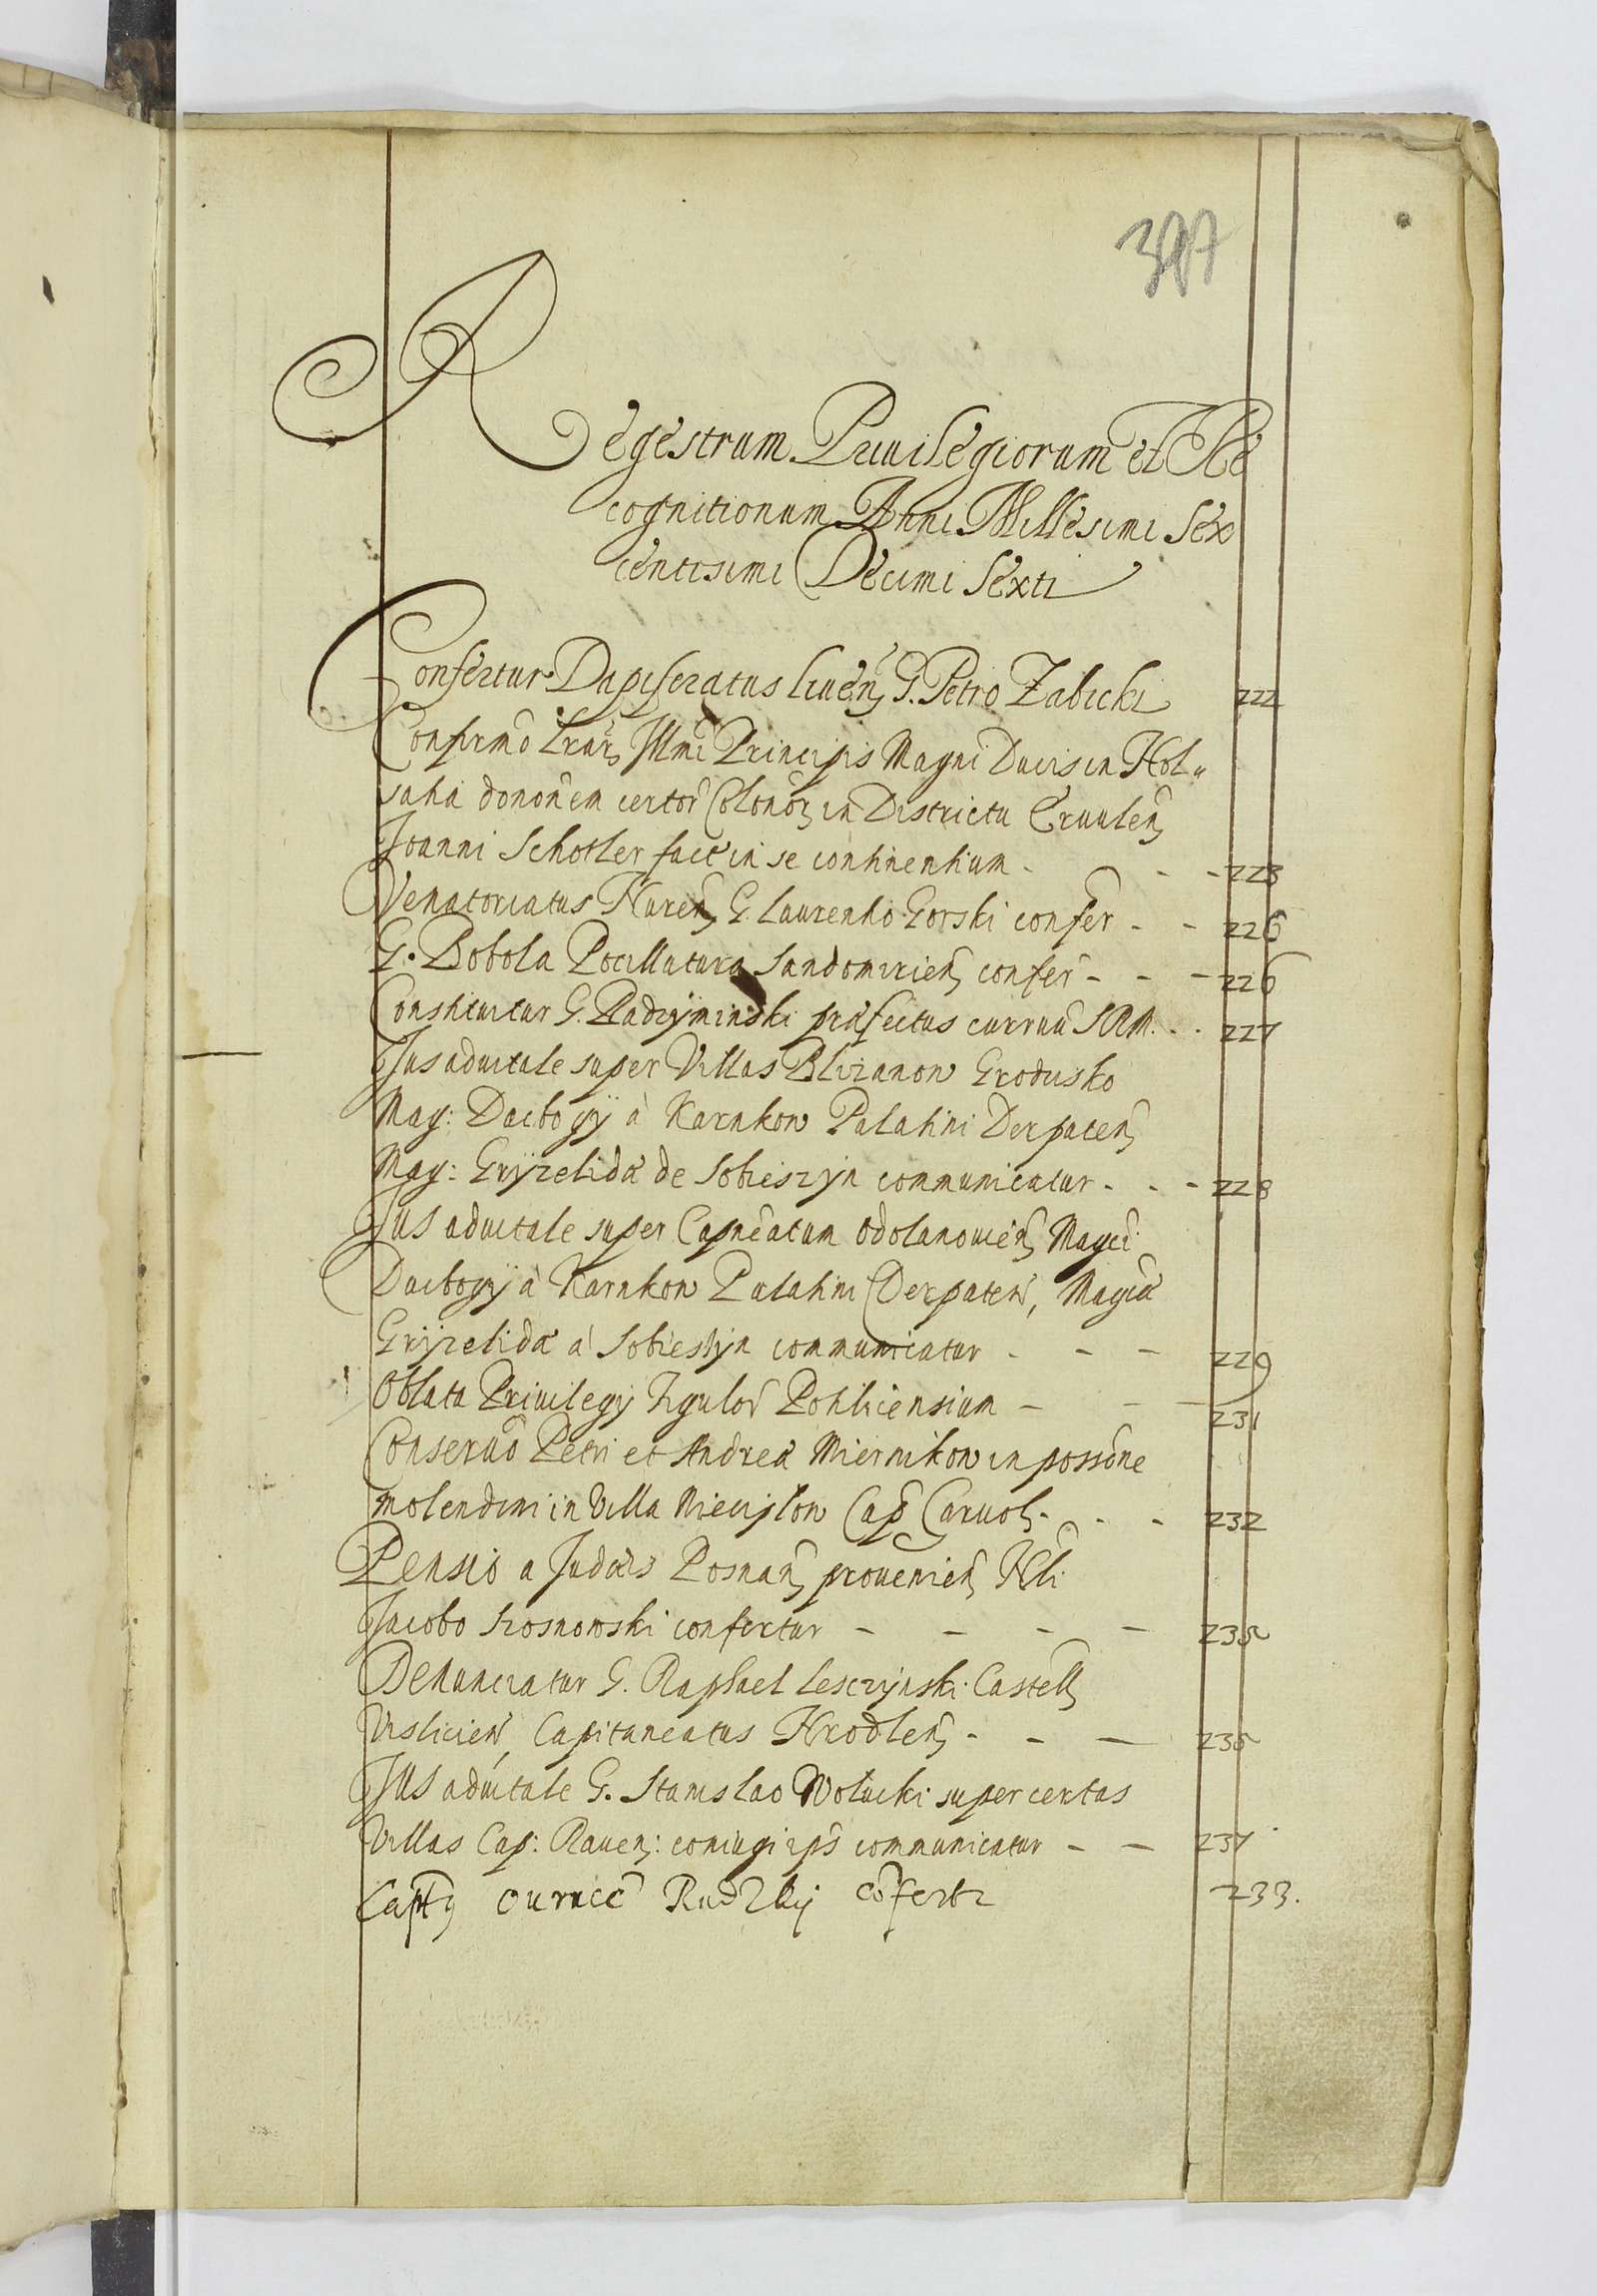 397
Regestrum Privilegiorum et Re
cognitionum Anni Millesimi Sex
centesimi Decimi Sexti
Confertur Dapiferatus Liueñ G. Petro Zabicki 222
Confirmõ Lrar Illmi Principis Magni Ducis in Hol„
satia donoñem certor Colonor in Districtu
Joanni Schotler fact in se continentium - - - 223
Venatoriatus Nureñ G. Laurentio Gorski confer̃ - - 226
G. Bobola Pocillatura Sandomirieñ confer̃ - - - 226
Constituitur G. Radzyminski præfectus curruũ SRM. - . 227
Jus aduitale super Villas Blizanow Grodzisko
Mag: Dacbogÿ à Karnkow Palatini Derpateñ
Mag: Gryzelidæ de Sobieszyn communicatur - - - 228
Jus aduitale super Capneatum Odolanouieñ Magci
Dacbogÿ à Karnkow Palatini Derpateñ, Magcæ
Gryzelidæ à Sobieszyn communicatur - - - 229
Oblata Priuilegÿ Figulor̃ Pohlicensium - - - 231
Conseruõ Petri et Andreæ Miernikow in possõne
molendini in Villa Cap̃ - - - 232
Pensio a Judæis Posnañ prouenieñ Nbli
Jacobo Srosnowski confertur - - - - 235
Denunciatur G. Raphael Lesczynski Castell
Vislicieñ Capitaneatus Hrodleñ - - - 235
Jus aduitale G. Stanislao Wolucki super certas
Villas Cap: Rauen: coniugi ips̃ communicatur - - 237
Captũ 233.